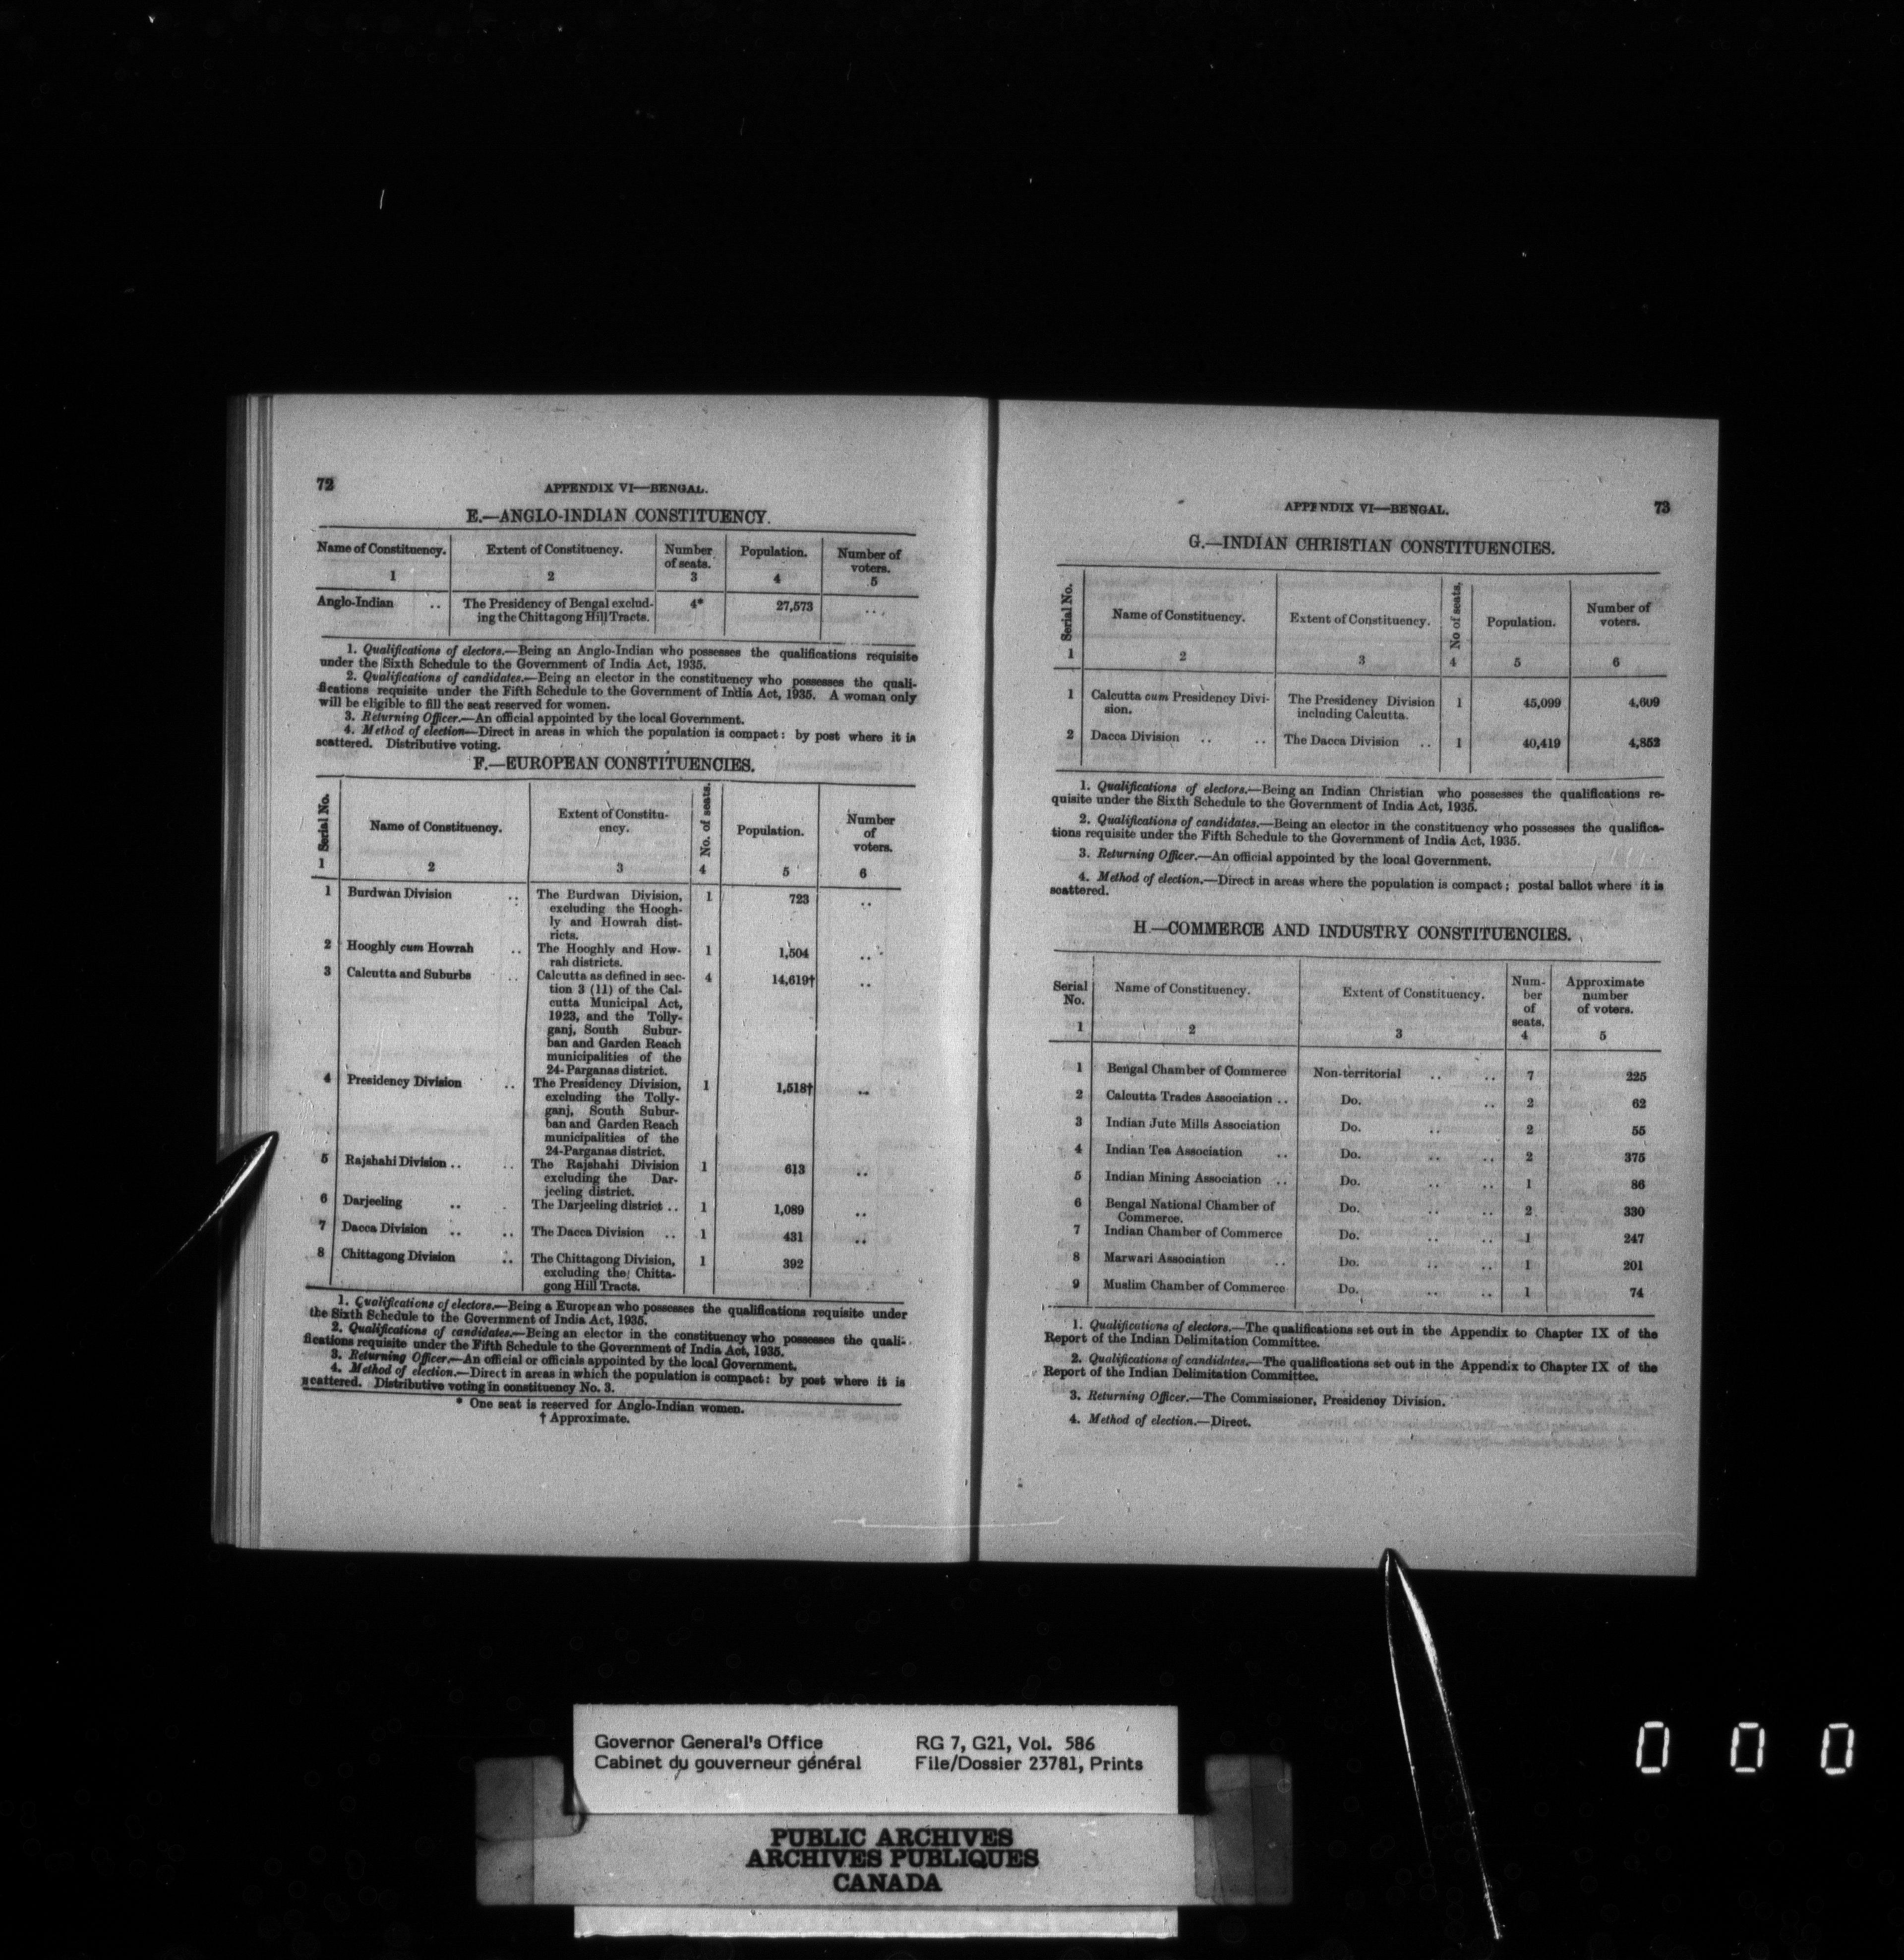 72
APPENDIX VI—BENGAL.
E.—ANGLO-INDIAN CONSTITUENCY.
Name of Constituency. Extent of Constituency. Number of seats. Population. Number of voters.
1 2 3 4 5
Anglo-Indian .. The Presidency of Bengal exclud- 4* 27,573 ...
ing the Chittagong Hill Tracts.
1. Qualifications of electors.—Being an Anglo-Indian who possesses the qualifications requisite
under the Sixth Schedule to the Government of India Act, 1935.
2. Qualifications of candidates.—Being an elector in the constituency who possesses the quali-
fications requisite under the Fifth Schedule to the Government of India Act, 1935. A woman only
will be eligible to fill the seat reserved for women.
3. Returning Officer.—An official appointed by the local Government.
4. Method of election—Direct in areas in which the population is compact: by post where it is
scattered. Distributive voting.
F.—EUROPEAN CONSTITUENCIES.
Serial No. Name of Constituency. Extent of Constitu-
ency. No. of seats. Population. Number
of
voters.
1 2 3 4 5 6
1 Burdwan Division .. The Burdwan Division, 1 723 ..
excluding the Hoogh-
ly and Howrah dist-
ricts.
2 Hooghly cum Howrah .. The Hooghly and How- 1 1,504 ..
rah districts.
3 Calcutta and Suburbs .. Calcutta as defined in sec- 4 14,619† ..
tion 3 (11) of the Cal-
cutta Municipal Act,
1923, and the Tolly-
ganj, South Subur-
ban and Garden Reach
municipalities of the
24-Parganas district.
4 Presidency Division .. The Presidency Division, 1 1,518† ..
excluding the Tolly-
ganj, South Subur-
ban and Garden Reach
municipalities of the
24-Parganas district.
5 Rajshahi Division .. .. The Rajshahi Division 1 613 ..
excluding the Dar-
jeeling district.
6 Darjeeling .. . The Darjeeling district .. 1 1,089 ..
7 Dacca Division .. .. The Dacca Division .. 1 431 ..
8 Chittagong Division .. The Chittagong Division, 1 392
excluding the Chitta-
gong Hill Tracts.
1. Qualifications of electors.—Being a European who possesses the qualifications requisite under
the Sixth Schedule to the Government of India Act, 1935.
2. Qualifications of candidates.—Being an elector in the constituency who possesses the quali-
fications requisite under the Fifth Schedule to the Government of India Act, 1935.
3. Returning Officer.—An official or officials appointed by the local Government.
4. Method of election.—Direct in areas in which the population is compact: by post where it is
scattered. Distributive voting in constituency No. 3.
* One seat is reserved for Anglo-Indian women.
† Approximate.
APPENDIX VI—BENGAL.
73
G.—INDIAN CHRISTIAN CONSTITUENCIES.
Serial No. Name of Constituency. Extent of Constituency. No of seats. Population. Number of
voters.
1 2 3 4 5 6
1 Calcutta cum Presidency Divi- The Presidency Division 1 45,099 4,609
sion. including Calcutta.
2 Dacca Division .. .. The Dacca Division .. 1 40,419 4,852
1. Qualifications of electors.—Being an Indian Christian who possesses the qualifications re-
quisite under the Sixth Schedule to the Government of India Act, 1935.
2. Qualifications of candidates.—Being an elector in the constituency who possesses the qualifica-
tions requisite under the Fifth Schedule to the Government of India Act, 1935.
3. Returning Officer.—An official appointed by the local Government.
4. Method of election.—Direct in areas where the population is compact; postal ballot where it is
scattered.
H.—COMMERCE AND INDUSTRY CONSTITUENCIES.
Serial
No. Name of Constituency. Extent of Constituency. Num-
ber
of
seats. Approximate
number
of voters.
1 2 3 4 5
1 Bengal Chamber of Commerce Non-territorial .. .. 7 225
2 Calcutta Trades Association .. Do. .. 2 62
3 Indian Jute Mills Association Do. .. 2 55
4 Indian Tea Association .. Do. .. .. 2 375
5 Indian Mining Association .. Do. .. .. 1 86
6 Bengal National Chamber of Do. .. .. 2 330
Commerce.
7 Indian Chamber of Commerce Do. .. .. 1 247
8 Marwari Association .. Do. .. .. 1 201
9 Muslim Chamber of Commerce Do. .. .. 1 74
1. Qualifications of electors.—The qualifications set out in the Appendix to Chapter IX of the
Report of the Indian Delimitation Committee.
2. Qualifications of candidates.—The qualifications set out in the Appendix to Chapter IX of the
Report of the Indian Delimitation Committee.
3. Returning Officer.—The Commissioner, Presidency Division.
4. Method of election.—Direct.
Governor General's Office RG 7, G21, Vol. 586
Cabinet du gouverneur général File/Dossier 23781, Prints
PUBLIC ARCHIVES
ARCHIVES PUBLIQUES
CANADA
0 0 0